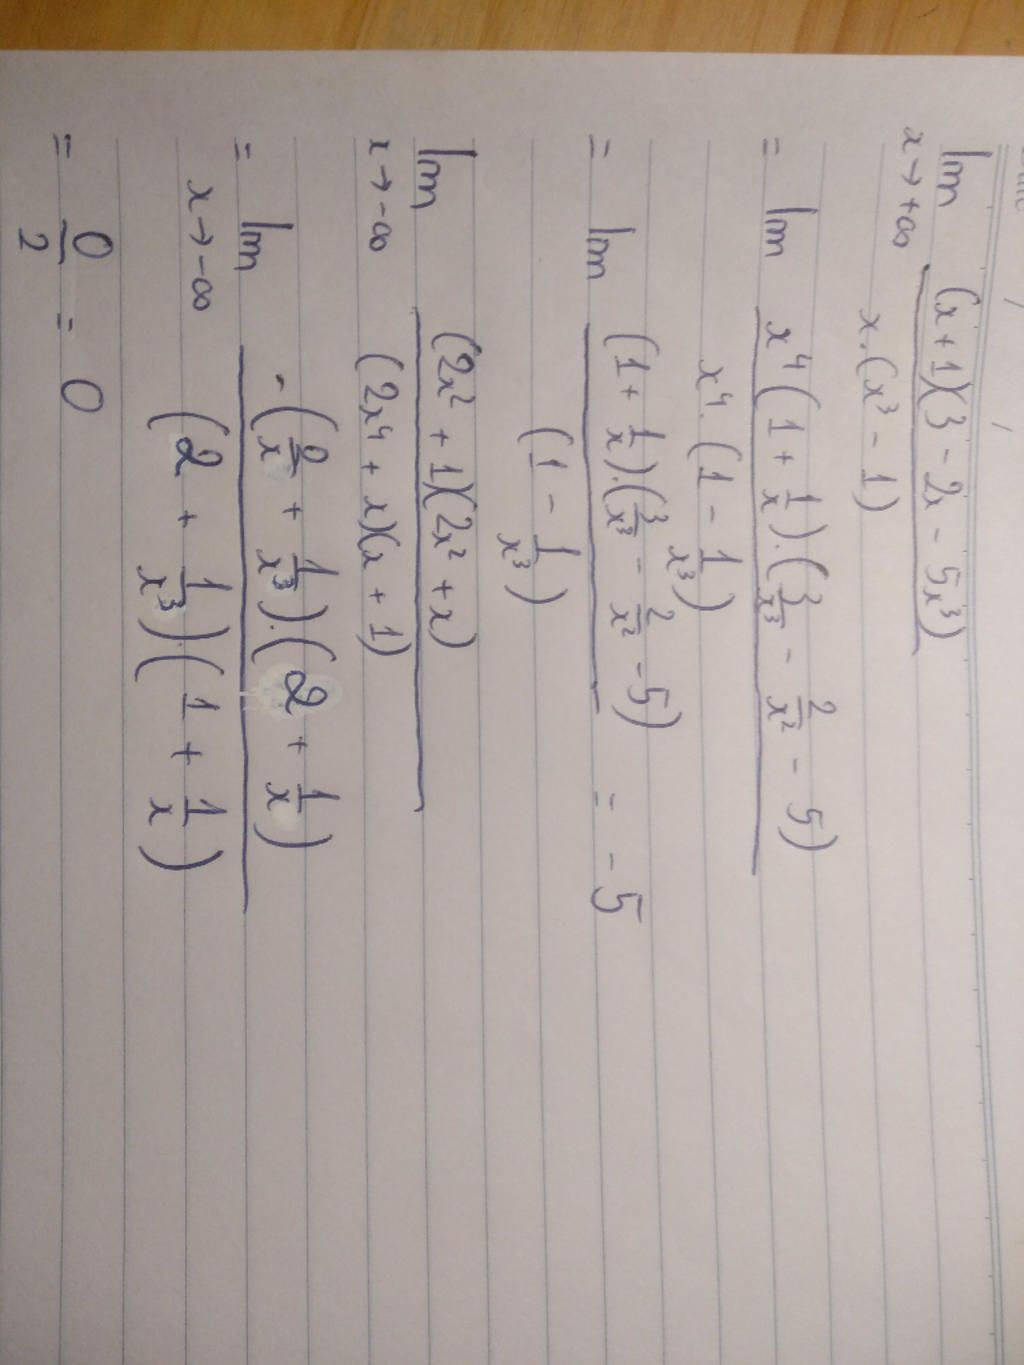 lim (x+1)(3 - 2x - 5x³)
x→+∞ x.(x³ - 1)
= lim x⁴(1 + 1/x).(3/x³ - 2/x² - 5)
x⁴.(1 - 1/x³)
= lim (1 + 1/x).(3/x³ - 2/x² - 5) = -5
(1 - 1/x³)
lim (2x² + 1)(2x² + x)
x→-∞ (2x⁴ + x)(x + 1)
= lim -(2/x + 1/x³).(2 + 1/x)
x→-∞ (2 + 1/x³).(1 + 1/x)
= 0/2 = 0